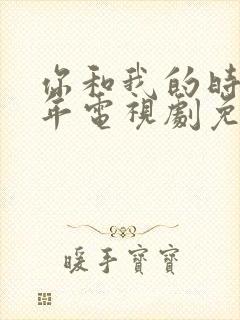 你和我的時
年電視劇免
暖手寶寶